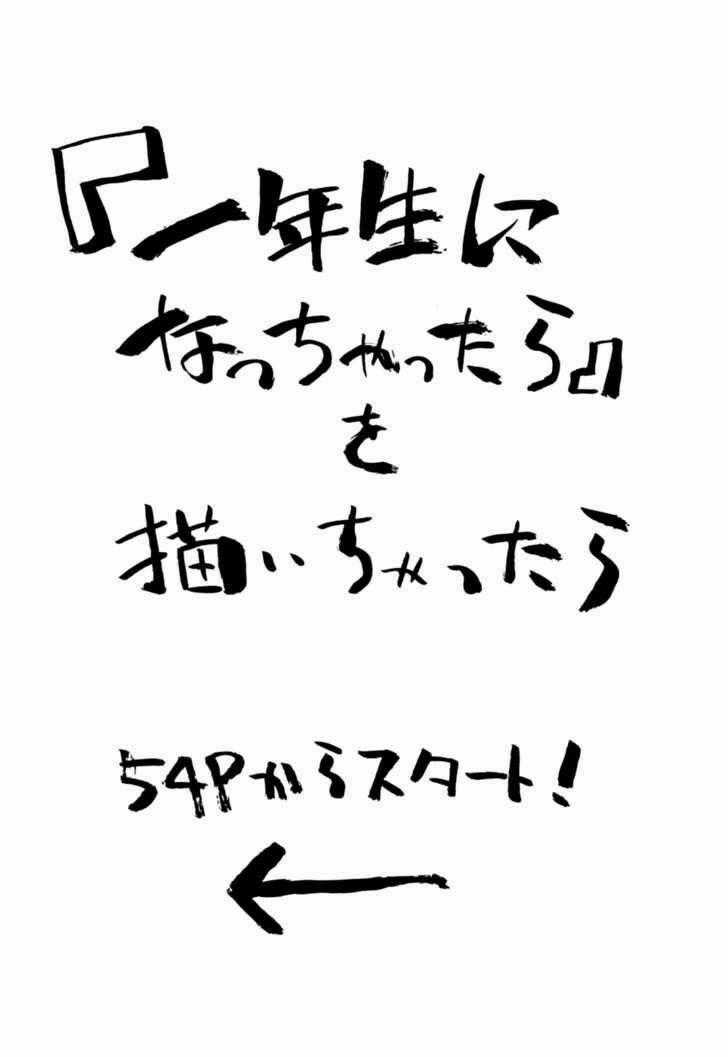 『一年生に
なっちゃったら』
を
描いちゃったら
54Pからスタート!